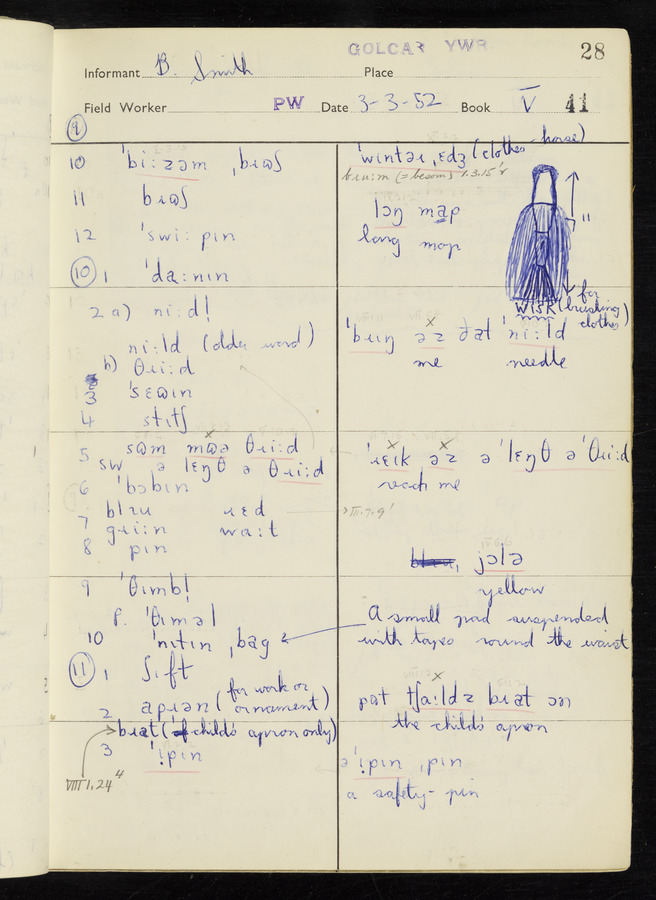 GOLCAR YWR
28
Informant B. Smith Place
Field Worker PW Date 3-3-52 Book V 41
9
10 ˈbiːzəm ˌbɹɷʃ
11 bɹɷʃ
12 ˈswiːpɪn
10 1 ˈdaːnɪn
2 a) niːd!
niːld (older word)
b) θɹiːd
3 ˈsɛɷɪn
4 stɪtʃ
5 sɷm mɷə θɹiːd
sw ə lɛŋθ ə θɹiːd
6 ˈbɔbɪn
7 blɪu ɹɛd
gɹiːn waːt
8 pɪn
9 ˈθɪmbl
p. ˈθɪməl
10 ˈnɪtɪn ˌbag
11 1 ʃɪft
2 apɹən (for work or ornament)
bɹat (child's apron only)
3 ˈɪpɪn
VIII 1.24⁴
ˈwɪntəɹ ˌɛdʒ (clothes-horse)
bɹuːm (= besom) 1.3.15'r
lɔŋ map
long mop
11"
wɪsk (for brushing clothes)
ˈbɹɪŋ əz ðat ˈniːld
me needle
ˈɹɛɪk əz ə ˈlɛŋθ ə ˈθɹiːd
reach me
VIII.7.9'
jɔlə
yellow
A small pad suspended
with tapes round the waist
pət tʃaːldz bɹat ɔn
the child's apron
əˈɪpɪn ˌpɪn
a safety-pin